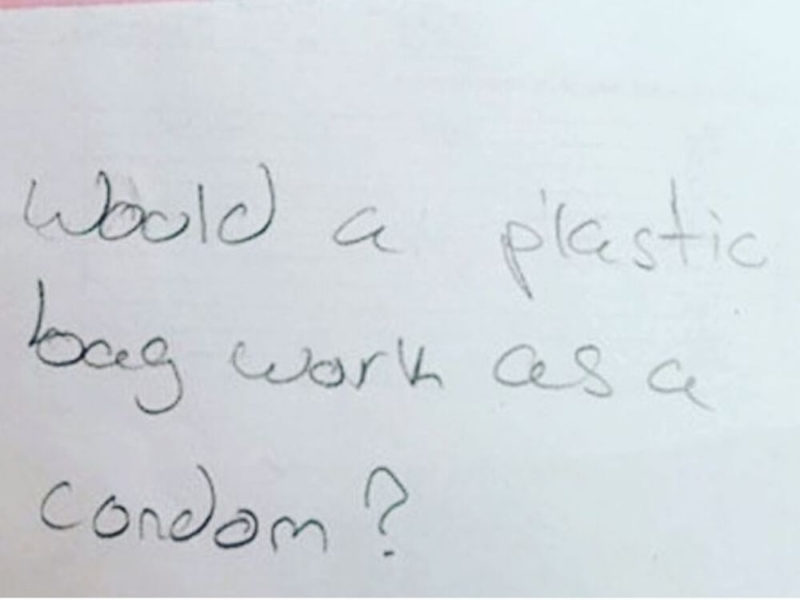 Would a plastic
bag work as a
condom?